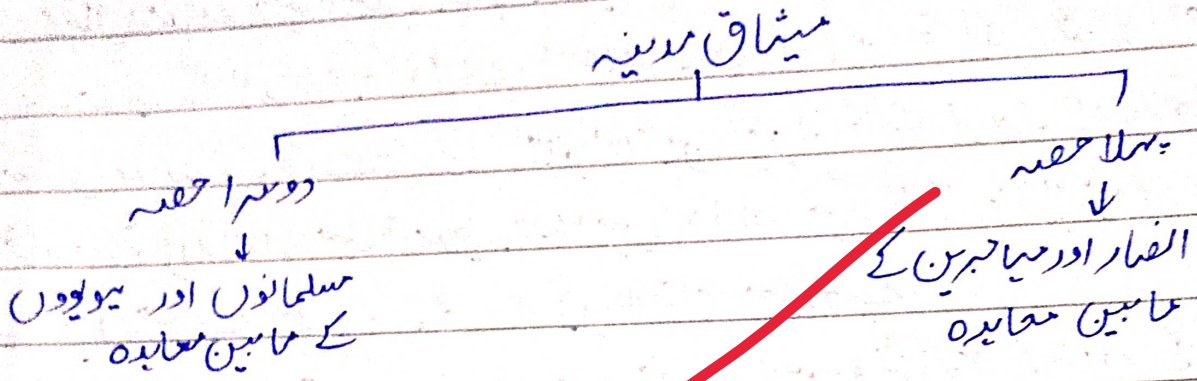 میثاق مدینہ
پہلا حصہ
↓
انصار اور مہاجرین کے
مابین معاہدہ
دوسرا حصہ
↓
مسلمانوں اور یہودیوں
کے مابین معاہدہ.